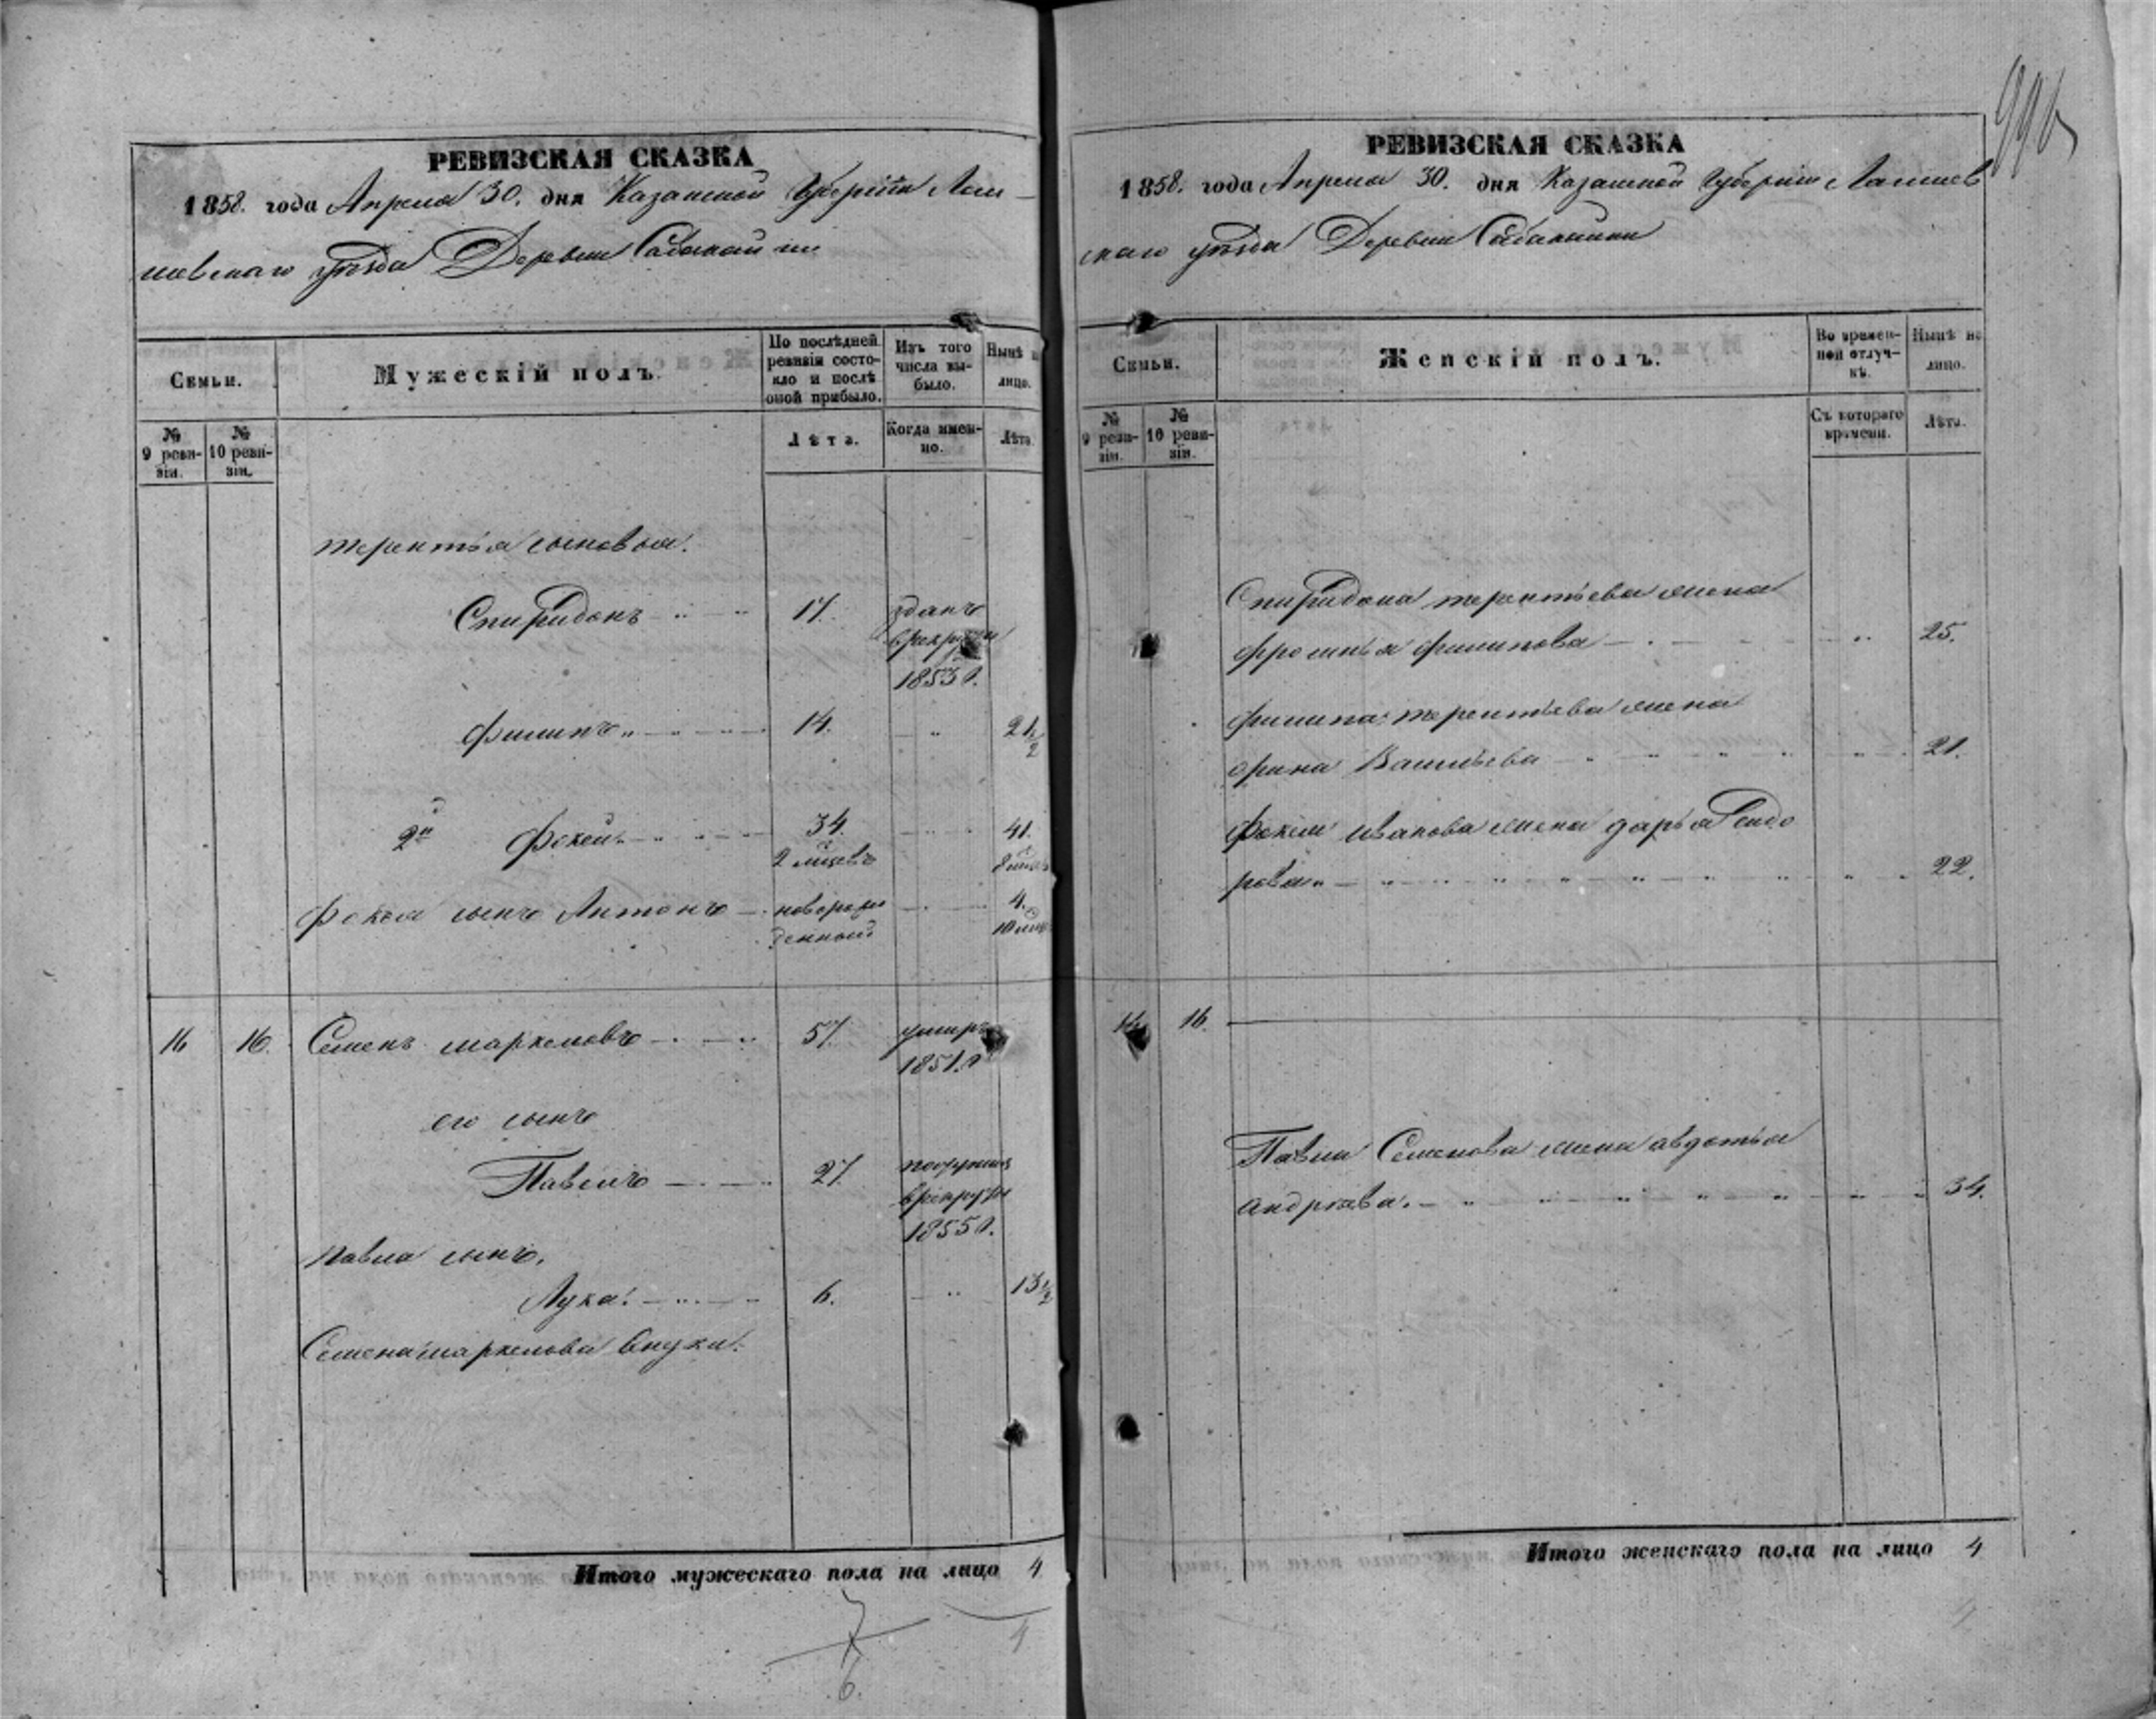 РЕВИЗСКАЯ СКАЗКА
1858. года Апреля 30. дня Казанской Губерніи Лаи-
шевскаго уѣзда Деревни
Семьи.
Мужескій полъ.
По послѣдней ревизіи состояло и послѣ оной прибыло.
Изъ того числа выбыло.
Нынѣ на лицо.
№ 9 ревизіи.
№ 10 ревизіи.
Лѣта.
Когда именно.
Лѣта.
терентья сыновья.
Спиридонъ 17. зданъ
в рекруты
1853 г.
филипъ 14. 21 1/2
2й Фокей 34. 41.
2 мѣсевъ 8
Фокея сынъ Антонъ новорож 4.
денный 10
16 16. Семенъ маркеловъ 57. умеръ
1851. г
его сынъ
Павелъ 27.
в рекруты
1855 г.
павла сынъ.
Лука. 6. 13 1/2
Семена маркелова внуки.
Итого мужескаго пола на лицо 4
4
7
6.
РЕВИЗСКАЯ СКАЗКА
1858. года Апреля 30. дня Казанской Губерніи Лаишев
скаго уѣзда Деревни
Семьи.
Женскій полъ.
Во временной отлучкѣ.
Нынѣ на лицо.
№ 9 ревизіи.
№ 10 ревизіи.
Съ котораго времени.
Лѣта.
Спиридона терентьева жена
филипова 25.
филипа терентьева жена
орина Васильева 21.
Фокея иванова жена дарья Сидо
рова 22.
16 16.
Павла Семенова жена авдотья
андреева. 34.
Итого женскаго пола на лицо 4